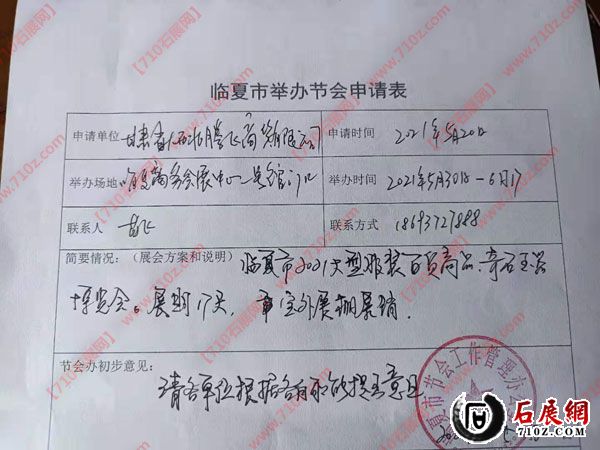 临夏市举办节会申请表
申请单位 甘肃省 腾飞商贸有限公司 申请时间 2021年5月20日
举办场地 临夏商务会展中心二号馆门口 举办时间 2021年5月30日－6月17
联系人 联系方式 18693727888
简要情况：（展会方案和说明） 临夏市2021大型服装百货商品、奇石玉器
博览会。展期17天， 室外展棚展销.
节会办初步意见：
请各单位根据各自 提出意见
夏市节会工作管理办公
【710石展网】www.710z.com
石展網
710z.com